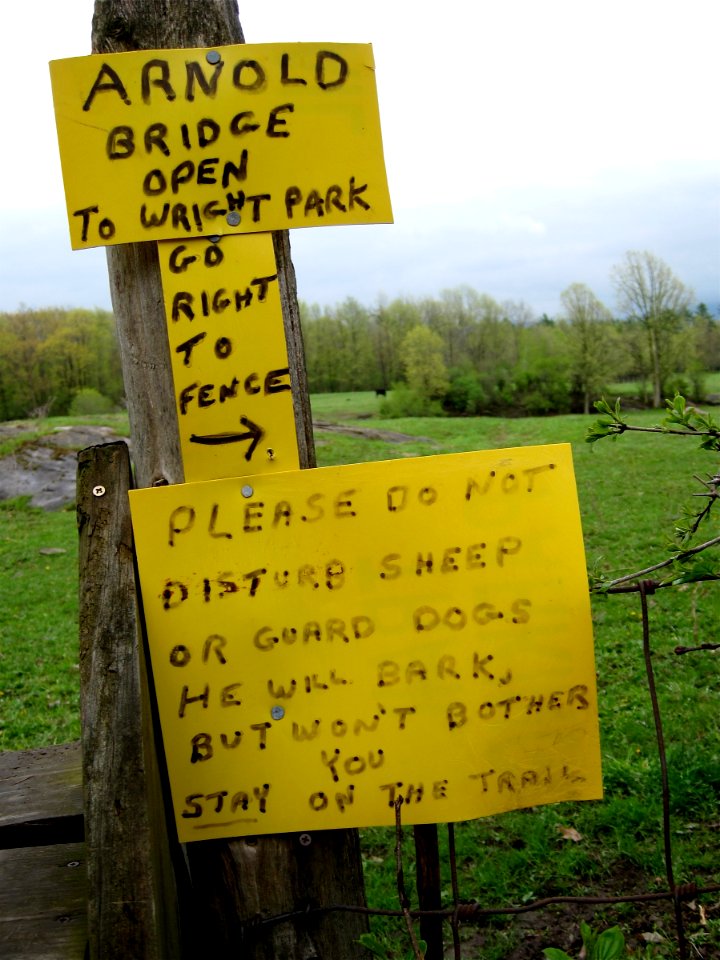 ARNOLD
BRIDGE
OPEN
TO WRIGHT PARK
GO
RIGHT
TO
FENCE
PLEASE DO NOT
DISTURB SHEEP
OR GUARD DOGS
HE WILL BARK,
BUT WON'T BOTHER
YOU
STAY ON THE TRAIL